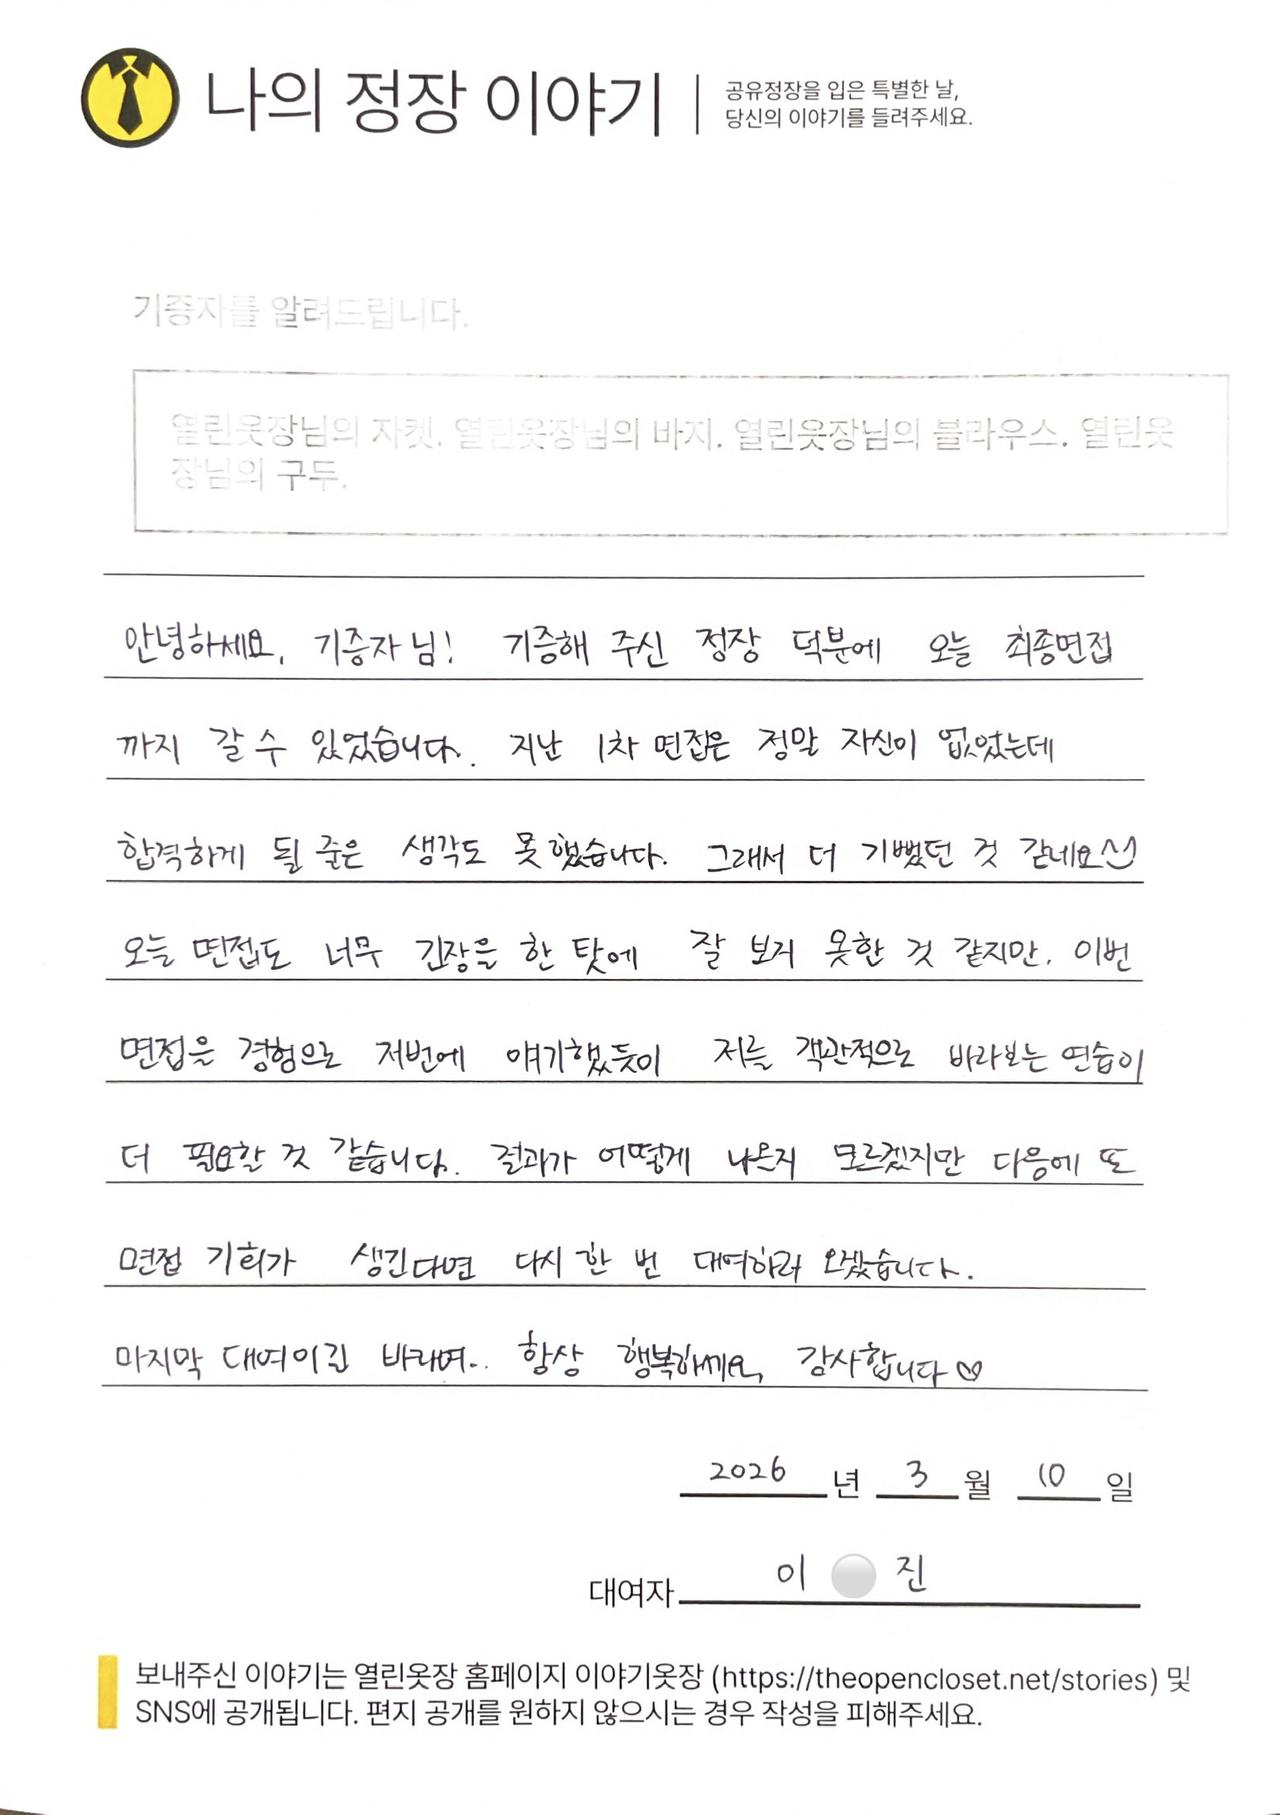 나의 정장 이야기
공유정장을 입은 특별한 날,
당신의 이야기를 들려주세요.
기증자를 알려드립니다.
열린옷장님의 자켓. 열린옷장님의 바지. 열린옷장님의 블라우스. 열린옷
장님의 구두.
안녕하세요, 기증자님! 기증해 주신 정장 덕분에 오늘 최종면접
까지 갈 수 있었습니다. 지난 1차 면접은 정말 자신이 없었는데
합격하게 될 줄은 생각도 못했습니다. 그래서 더 기뻤던 것 같네요^^
오늘 면접도 너무 긴장을 한 탓에 잘 보지 못한 것 같지만, 이번
면접을 경험으로 저번에 얘기했듯이 저를 객관적으로 바라보는 연습이
더 필요할 것 같습니다. 결과가 어떻게 나온지 모르겠지만 다음에 또
면접 기회가 생긴다면 다시 한 번 대여하러 오겠습니다.
마지막 대여이길 바라며.. 항상 행복하세요, 감사합니다♡
2026 년 3 월 10 일
대여자 이 진
보내주신 이야기는 열린옷장 홈페이지 이야기옷장 (https://theopencloset.net/stories) 및
SNS에 공개됩니다. 편지 공개를 원하지 않으시는 경우 작성을 피해주세요.